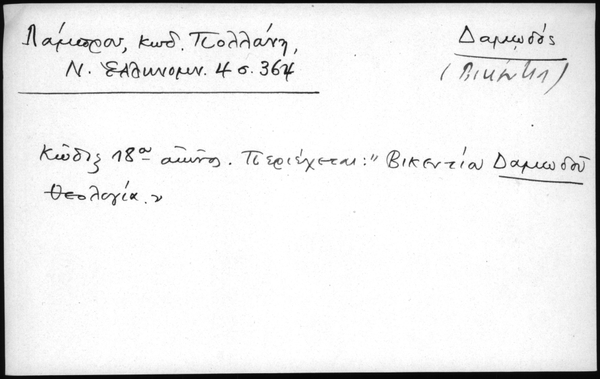 Λάμπρου, κωδ. Πολλάνη,
Ν. Ἑλληνομν. 4 σ. 364
Δαμωδός
(Βικέντιος)
Κῶδιξ 18ου αἰῶνος. Περιέχεται: "Βικεντίου Δαμωδοῦ
Θεολογία."